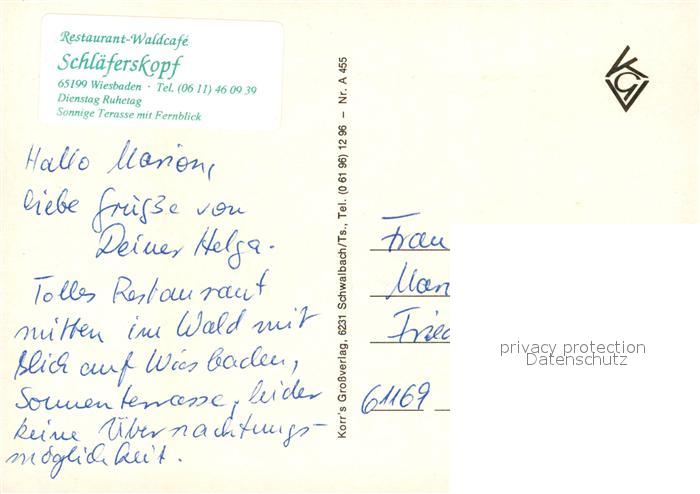 Restaurant-Waldcafé
Schläferskopf
65199 Wiesbaden · Tel. (06 11) 46 09 39
Dienstag Ruhetag
Sonnige Terasse mit Fernblick
Hallo Marion,
liebe Grüße von
Deiner Helga.
Tolles Restaurant
mitten im Wald mit
Blick auf Wiesbaden,
Sonnenterrasse, leider
keine Übernachtungs-
möglichkeit.
Korr's Großverlag, 6231 Schwalbach/Ts., Tel. (0 61 96) 12 96 – Nr. A 455
KGV
Frau
Mari
Fried
61169
privacy protection
Datenschutz